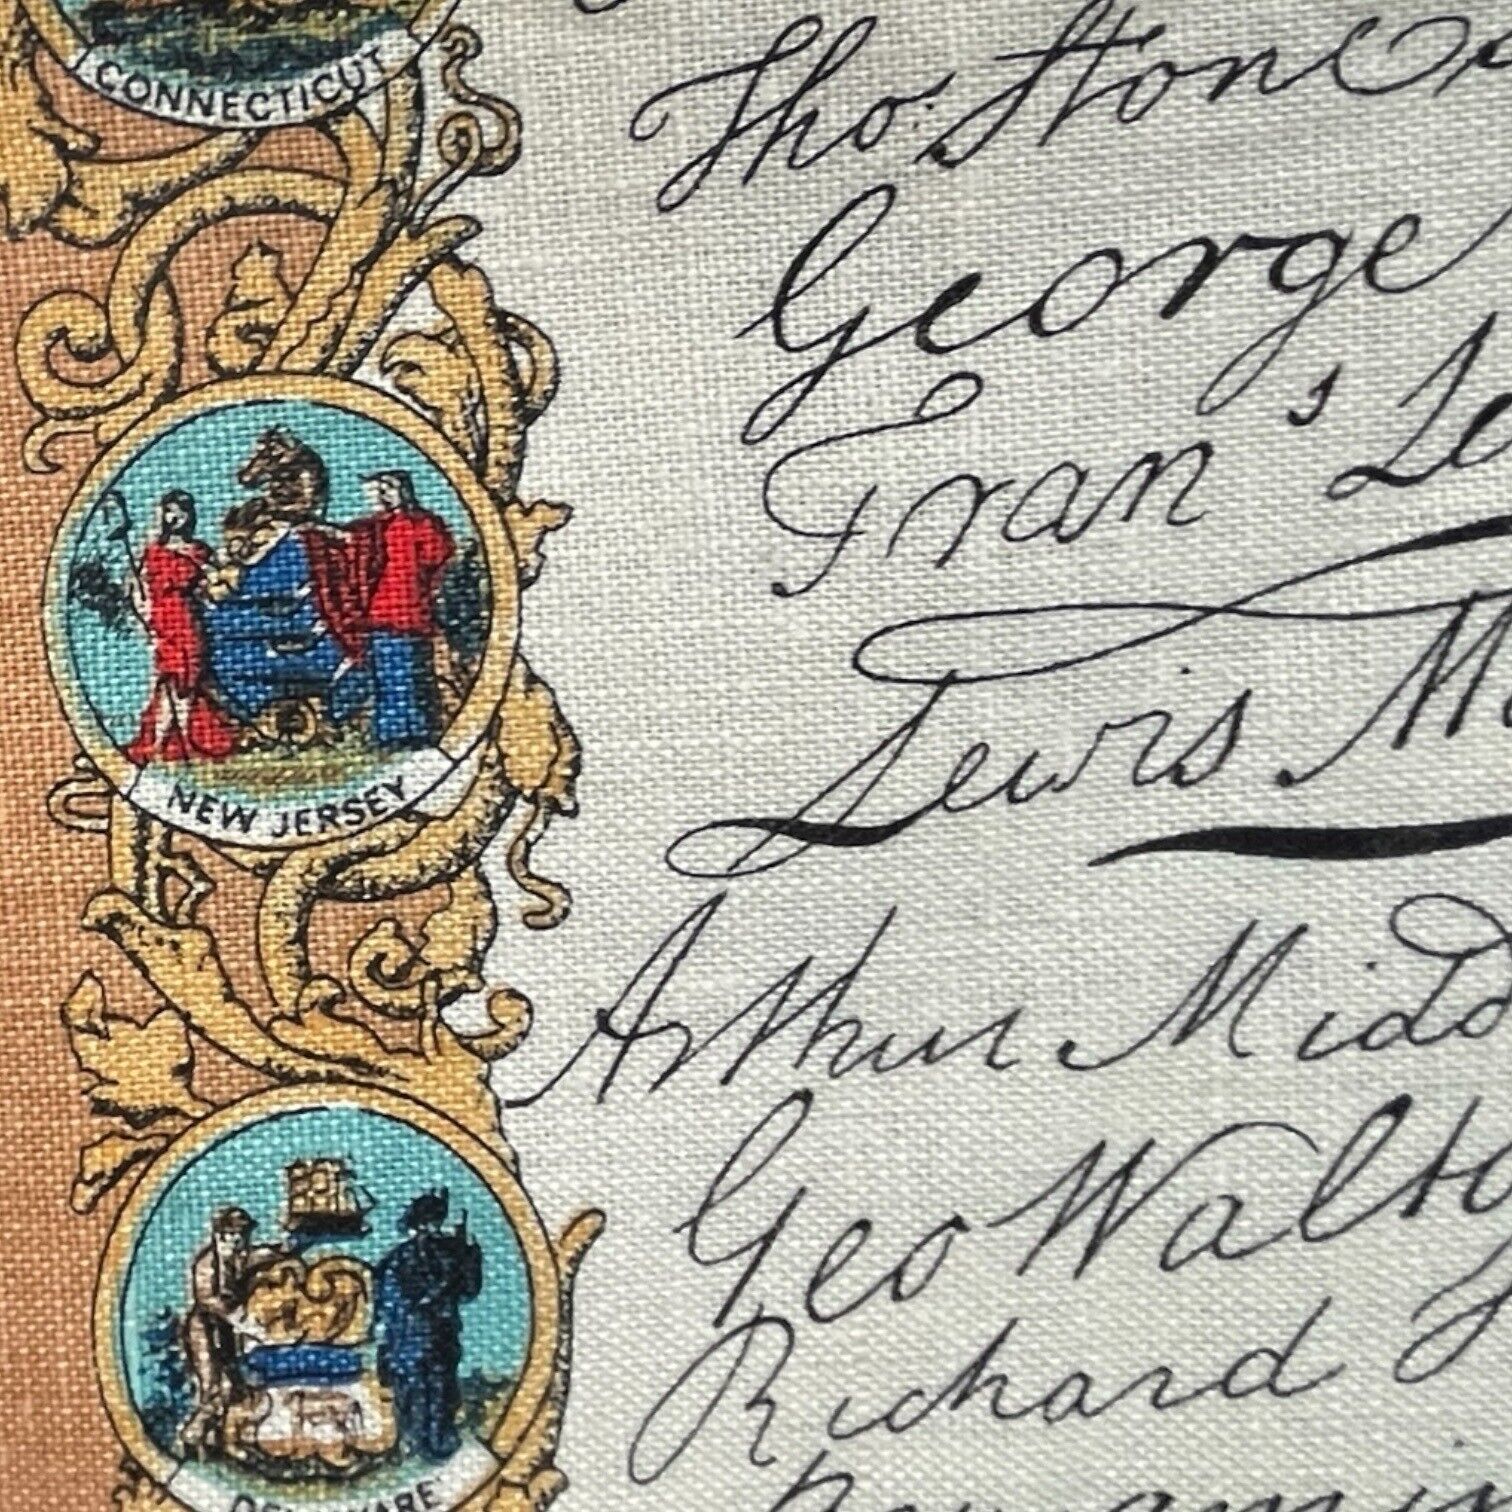 CONNECTICUT
Tho: Stone
George
Fran's
Lewis
NEW JERSEY
Arthur
Geo Walt
Richard
DELAWARE